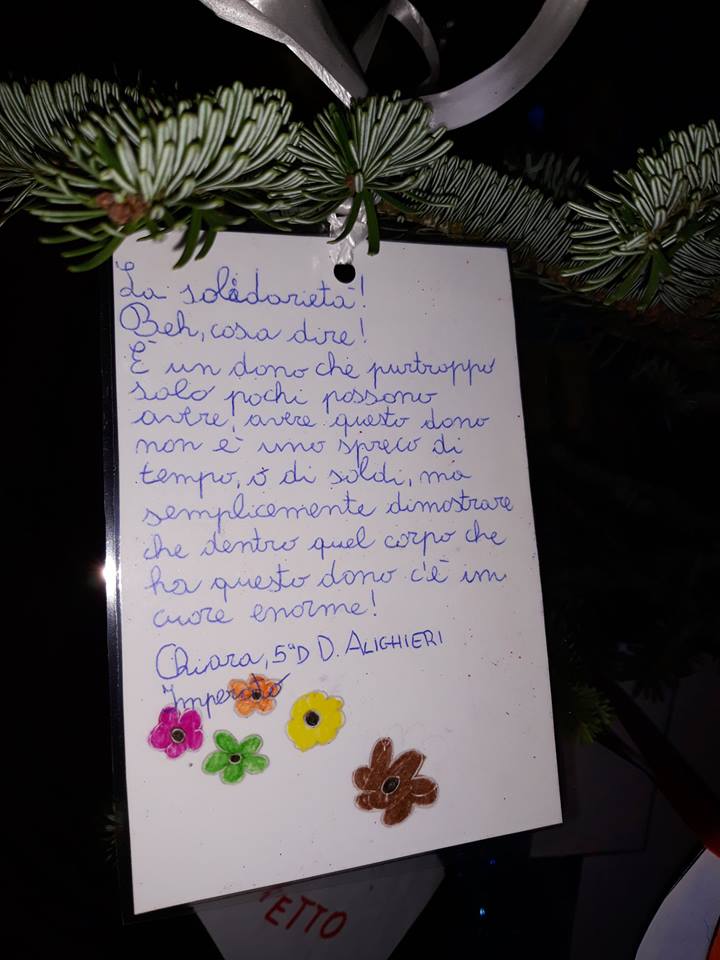 La solidarietà!
Beh, cosa dire!
È un dono che purtroppo
solo pochi possono
avere, avere questo dono
non è uno spreco di
tempo, o di soldi, ma
semplicemente dimostrare
che dentro quel corpo che
ha questo dono c'è un
cuore enorme!
Chiara, 5ªD D. ALIGHIERI
ETTO